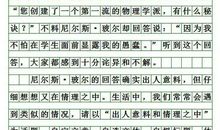 “您创建了一个第一流的物理学派，有什么秘
诀？”不料尼尔斯·玻尔却回答说：“因为我
不怕在学生面前显露我的愚蠢。”听到这个回
答，大家都感到十分诧异和不解。
尼尔斯·玻尔的回答确实出人意料，但仔
细想想又在情理之中。生活中，我们常常会遇
到类似的情况。请以“出人意料和情理之中”